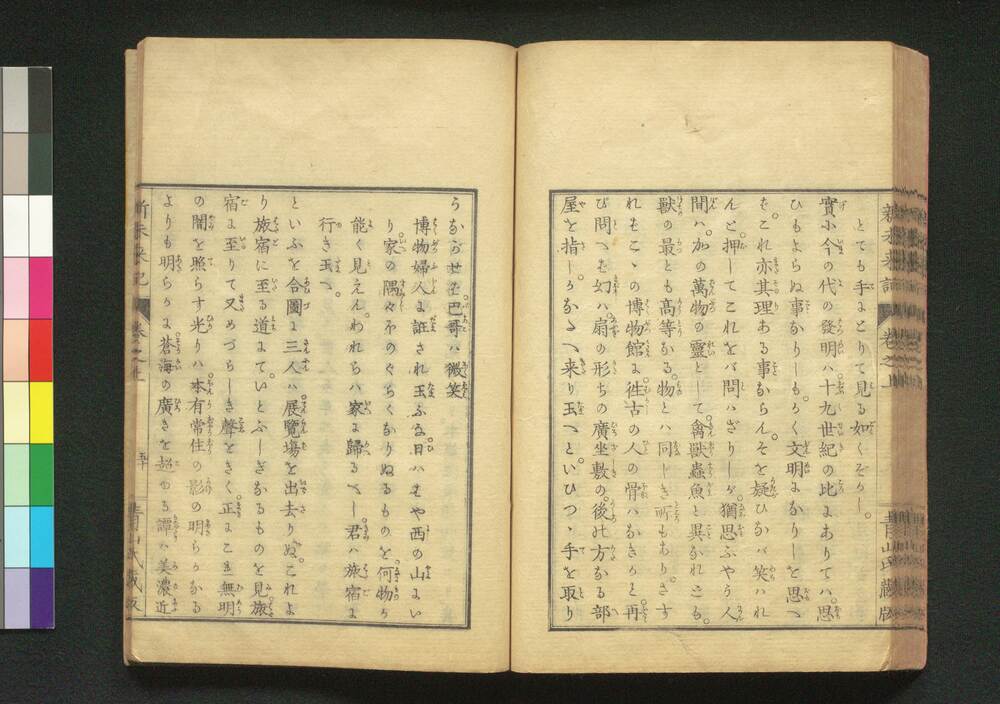 新未来記 卷之上 青山氏藏版
とても手にとりて見る如くぞかし。
實に今の代の發明ハ。十九世紀の比にありてハ。思
ひもよらぬ事なりしも。かく文明になりしを思へ
ば。これ亦其理ある事ならん。そを疑ひなバ笑ハれ
んと。押してこれをバ問ハざりしが。猶思ふやう人
間ハ。かの萬物の靈として。禽獸蟲魚と異なれども。
獸の最とも高等なる。物とハ同じき所もあり。さす
れバこゝの博物館に。往古の人の骨ハなきかと。再
び問へバ幻ハ。扇の形ちの廣坐敷の。後の方なる部
屋を指し。かなたへ来り玉へと。いひつゝ手を取り
うながせバ。巴哥ハ微笑
博物婦人に誑され玉ふな。日ハはや西の山にい
り。家の隅々ぞのぐらくなりぬるものを。何物か
能く見えん。われらハ家に歸るべし。君ハ旅宿に
行き玉へ。
といふを合圖に三人ハ。展覽塲を出去りぬ。これよ
り旅宿に至る道にて。いとふしぎなるものを見。旅
宿に至りて又めづらしき聲をきく。正にこれ無明
の闇を照らす光りハ。本有常住の影の明らかなる
よりも明らかに。蒼海の廣きを超ゆる譚ハ。美濃近
新未来記 卷之上 五 青山氏藏版